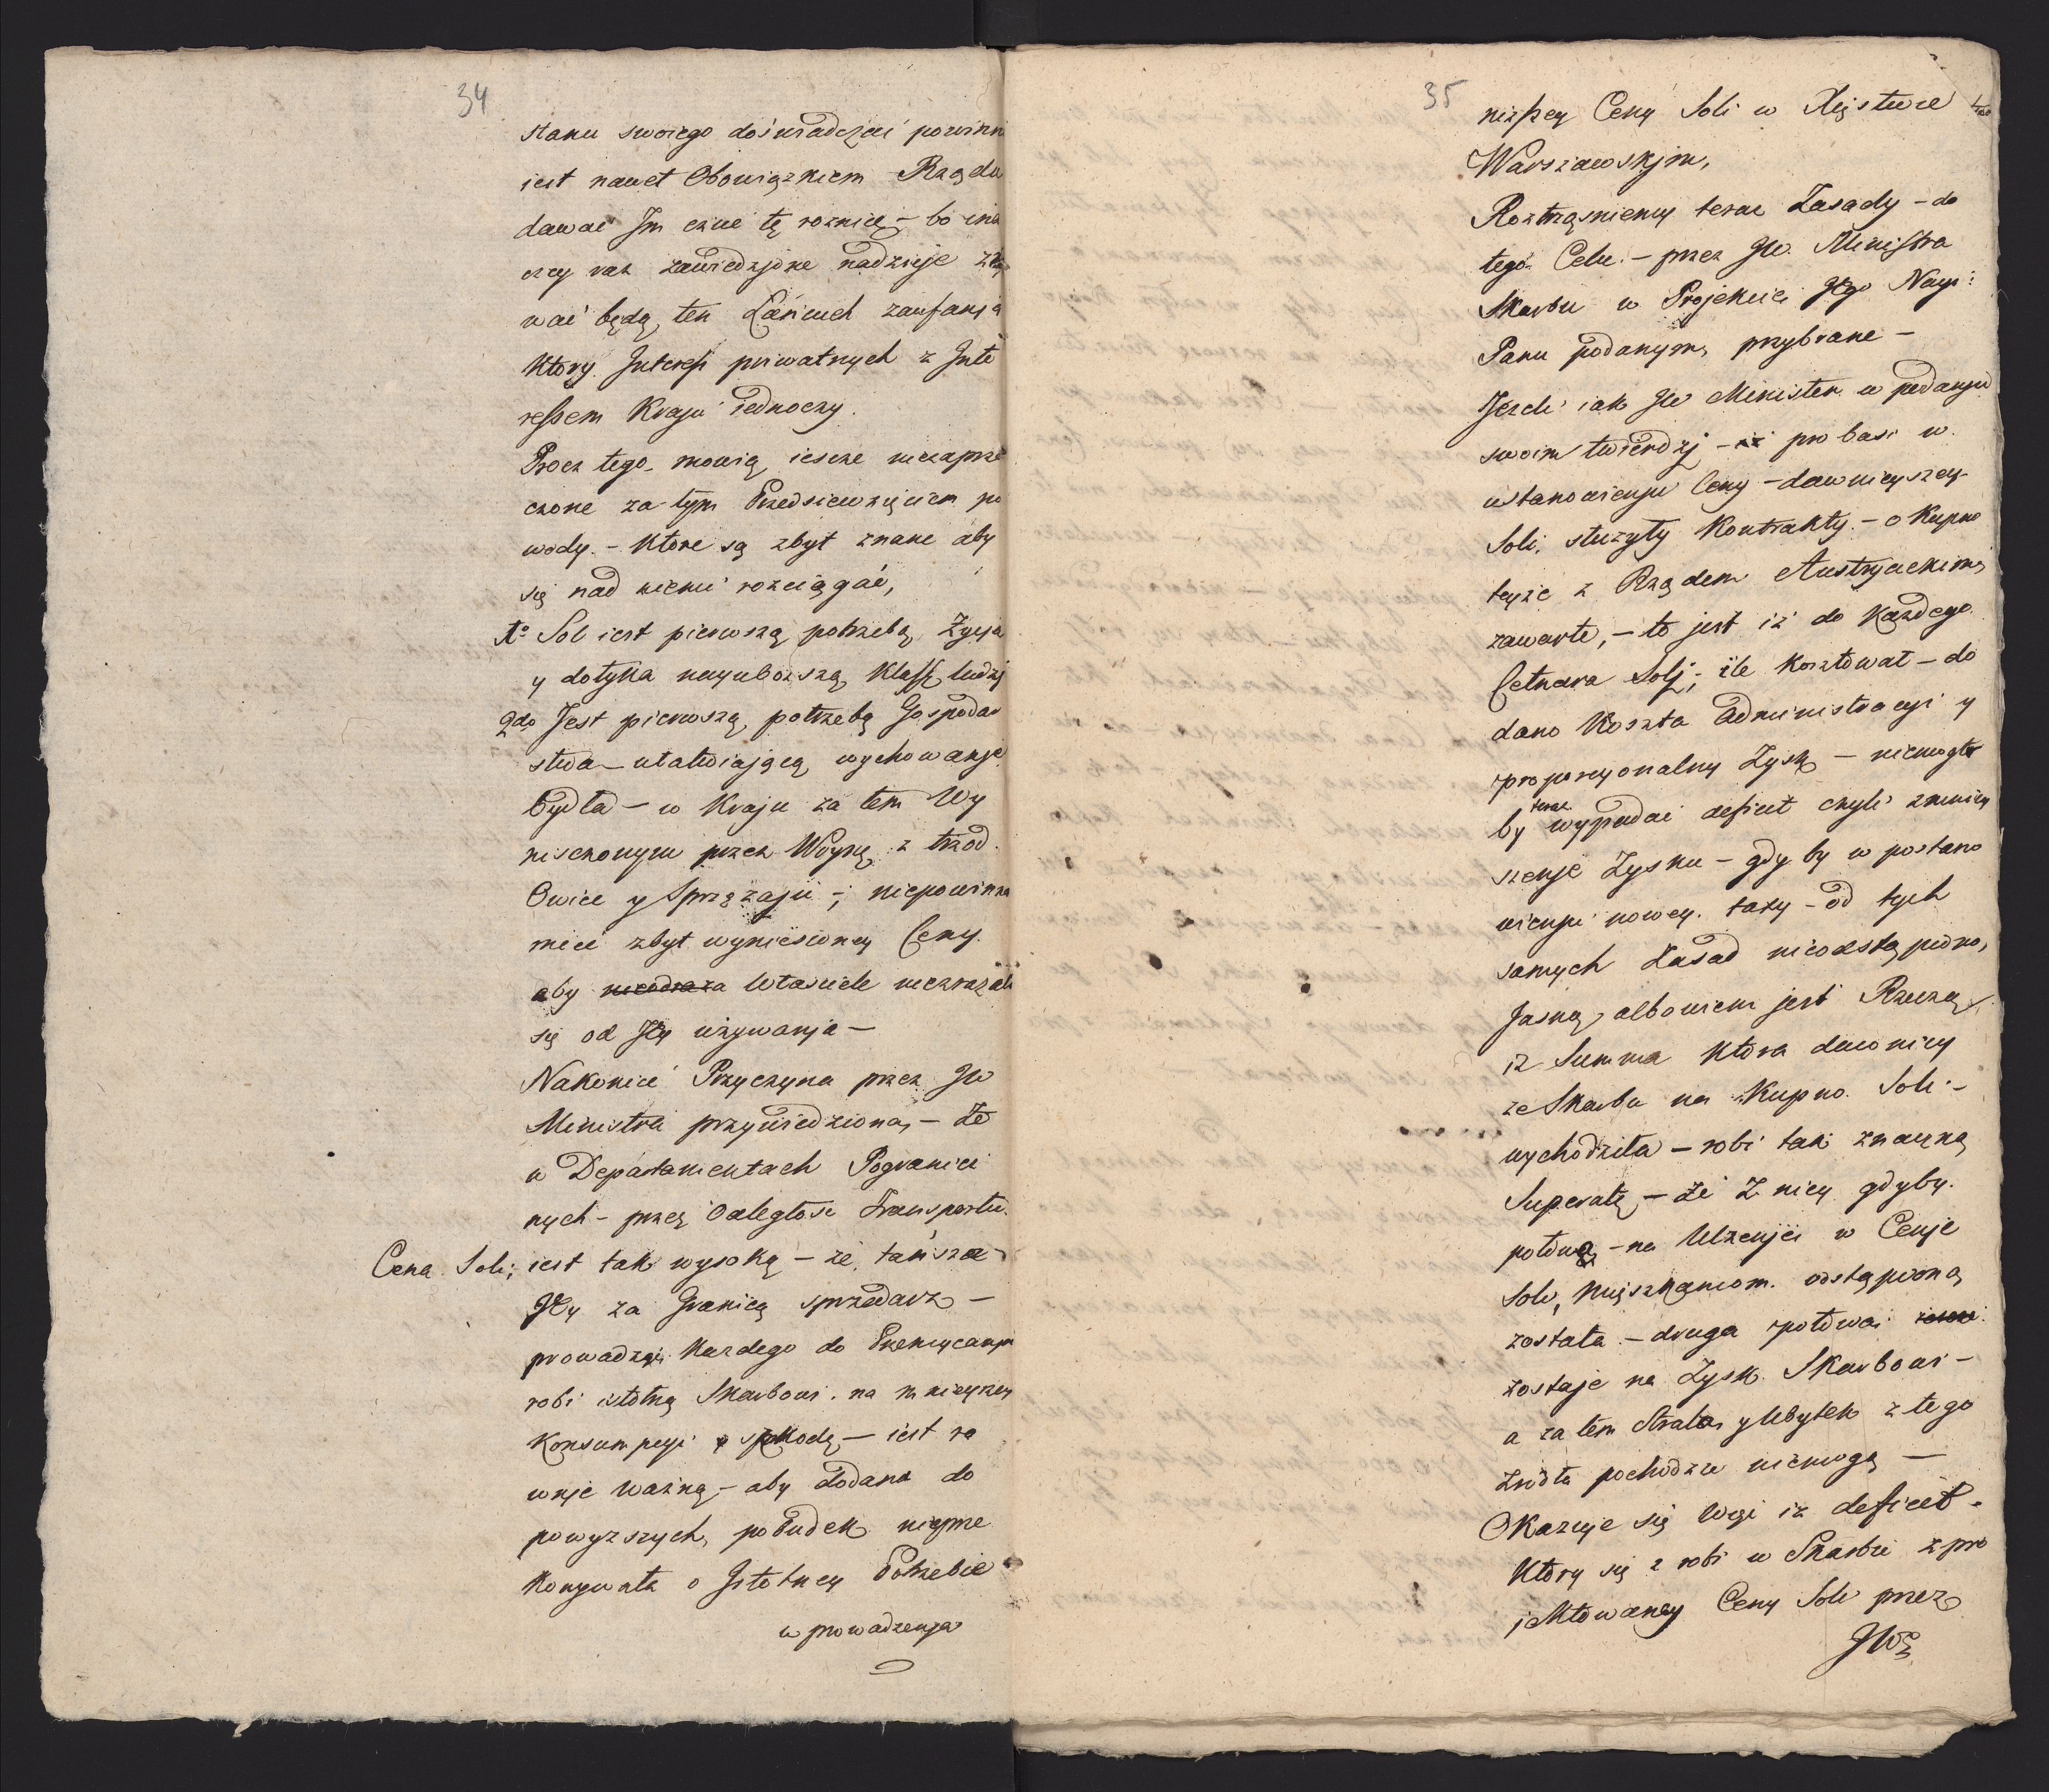 34
stanu swoiego doświadczać powinni
iest nawet Obowiązkiem Rządu
dawać Im czuć tę roznicę – bo ina
czey raz zawiedzjone nadzieje
wać będą, ten Łańcuch zaufanja
Ktory Interess prywatnych z Inte
ressem Kraju iednoczy.
Procz tego mowią iescze niezaprze
czone za tym Przedsiewzięciem po
wody. – Ktore są zbyt znane aby
się nad niemi rozciągać,
1o Sol iest pierwszą potrzebą Życja
y dotyka nayuboższą Klassę ludzj
2do Jest pierwszą potrzebą Gospodar
stwa – ułatwiającą wychowanje
bydła – w Kraju za tem Wy
nisczonym przez Woynę z trzod
Owiec y Sprzężaju –; niepowinna
mieć zbyt wyniesioney Ceny
aby właściciele niezrażali
się od Jey używanja –
Nakoniec Przyczyna przez JW
Ministra przywiedziona, – że
w Departamentach Pogranicz
nych – przez odległość Transportu
Cena Soli; iest tak wysoką – że, tańsza
Jey za Granicą sprzedarz –
prowadząc Kazdego do Przemycanja
robi istotną Skarbowi na mnieyszey
Konsumpcyi szkodę – iest ro
wnje ważną, – aby dodana do
powyższych, pobudek nieprze
Konywała o Istotney Potrzebie
wprowadzenja
35
niższey Ceny Soli w Xięstwie
Warszawskjm,
Roztrząsniemy teraz Zasady – do
tego Celu – przez JW. Ministra
Skarbu w Projekcie Jego Nayi:
Panu podanym, przybrane –
Jeżeli iak JW Minister w podanju
swoim twierdzj – iż pro basi w
ustanowienju Ceny – dawnieyszey
Soli, służyły Kontrakty – o Kupno
teyże z Rządem Austryackim,
zawarte, – to jest iż do Kazdego
Cetnara Solj; ile kosztował – do
dano Koszta administracyi y
proporcyonalny Zysk – niemogło
by teraz wypadać deficit czyli zmniey
szenje Zysku – gdyby w postano
wienju nowey taxy – od tych
samych Zasad nieodstąpiono,
Jasną albowiem jest Rzeczą
iż Summa Ktora dawniey
ze Skarbu na Kupno Soli –
wychodziła – robi tak znaczną
Superatę – że z niey gdyby
połowa – na Ulżenjei w Cenje
Soli, Mięszkańcom odstąpioną
została – druga połowa
zostaje na Zysk Skarbowi –
a za tem Strata y Ubytek z tego
źrodła pochodzić niemogą –
Okazuje się Wgi iż deficit –
Ktory się zrobi w Skarbie z pro
jektowaney Ceny Soli przez
JW